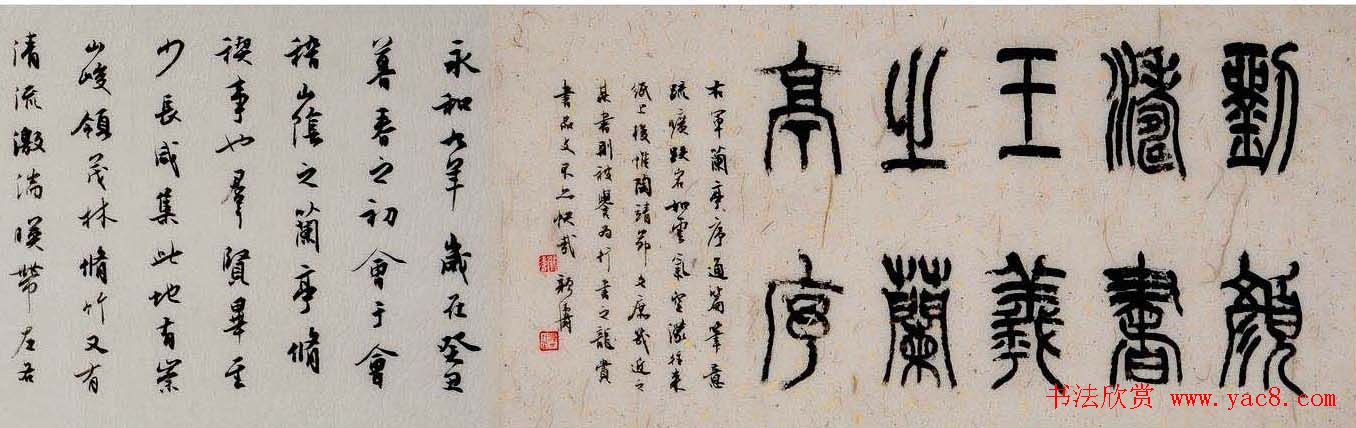 劉顏
濤書
王羲
之蘭
亭序
右軍蘭亭序通篇筆意
疏曠跌宕如雲氣空濛往來
紙上後惟陶靖節文庶幾近之
其書則被譽為行書之龍賞
書品文不亦快哉
永和九年歲在癸丑
暮春之初會于會
稽山陰之蘭亭脩
禊事也羣賢畢至
少長咸集此地有崇
山峻領茂林脩竹又有
清流激湍暎帶左右
书法欣赏 www.yac8.com